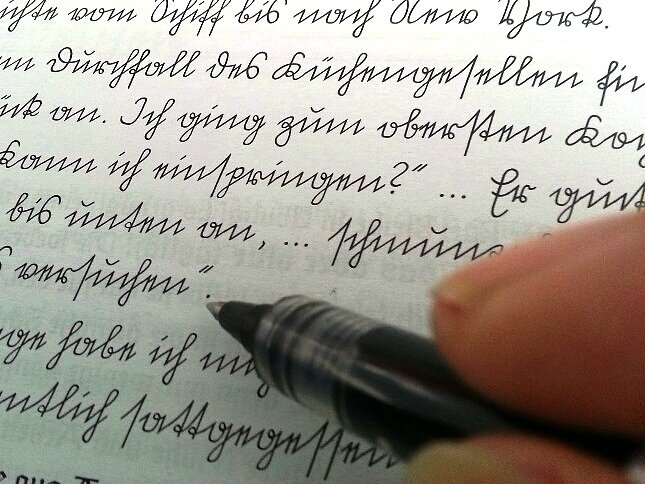 ichte vom Schiff bis nach New York.
Durchfall des Küchengesellen
an. Ich ging zum obersten
kann ich einspringen?“ ... Er guckt
bis unten an, ...
versuchen“.
habe ich
sattgegessen